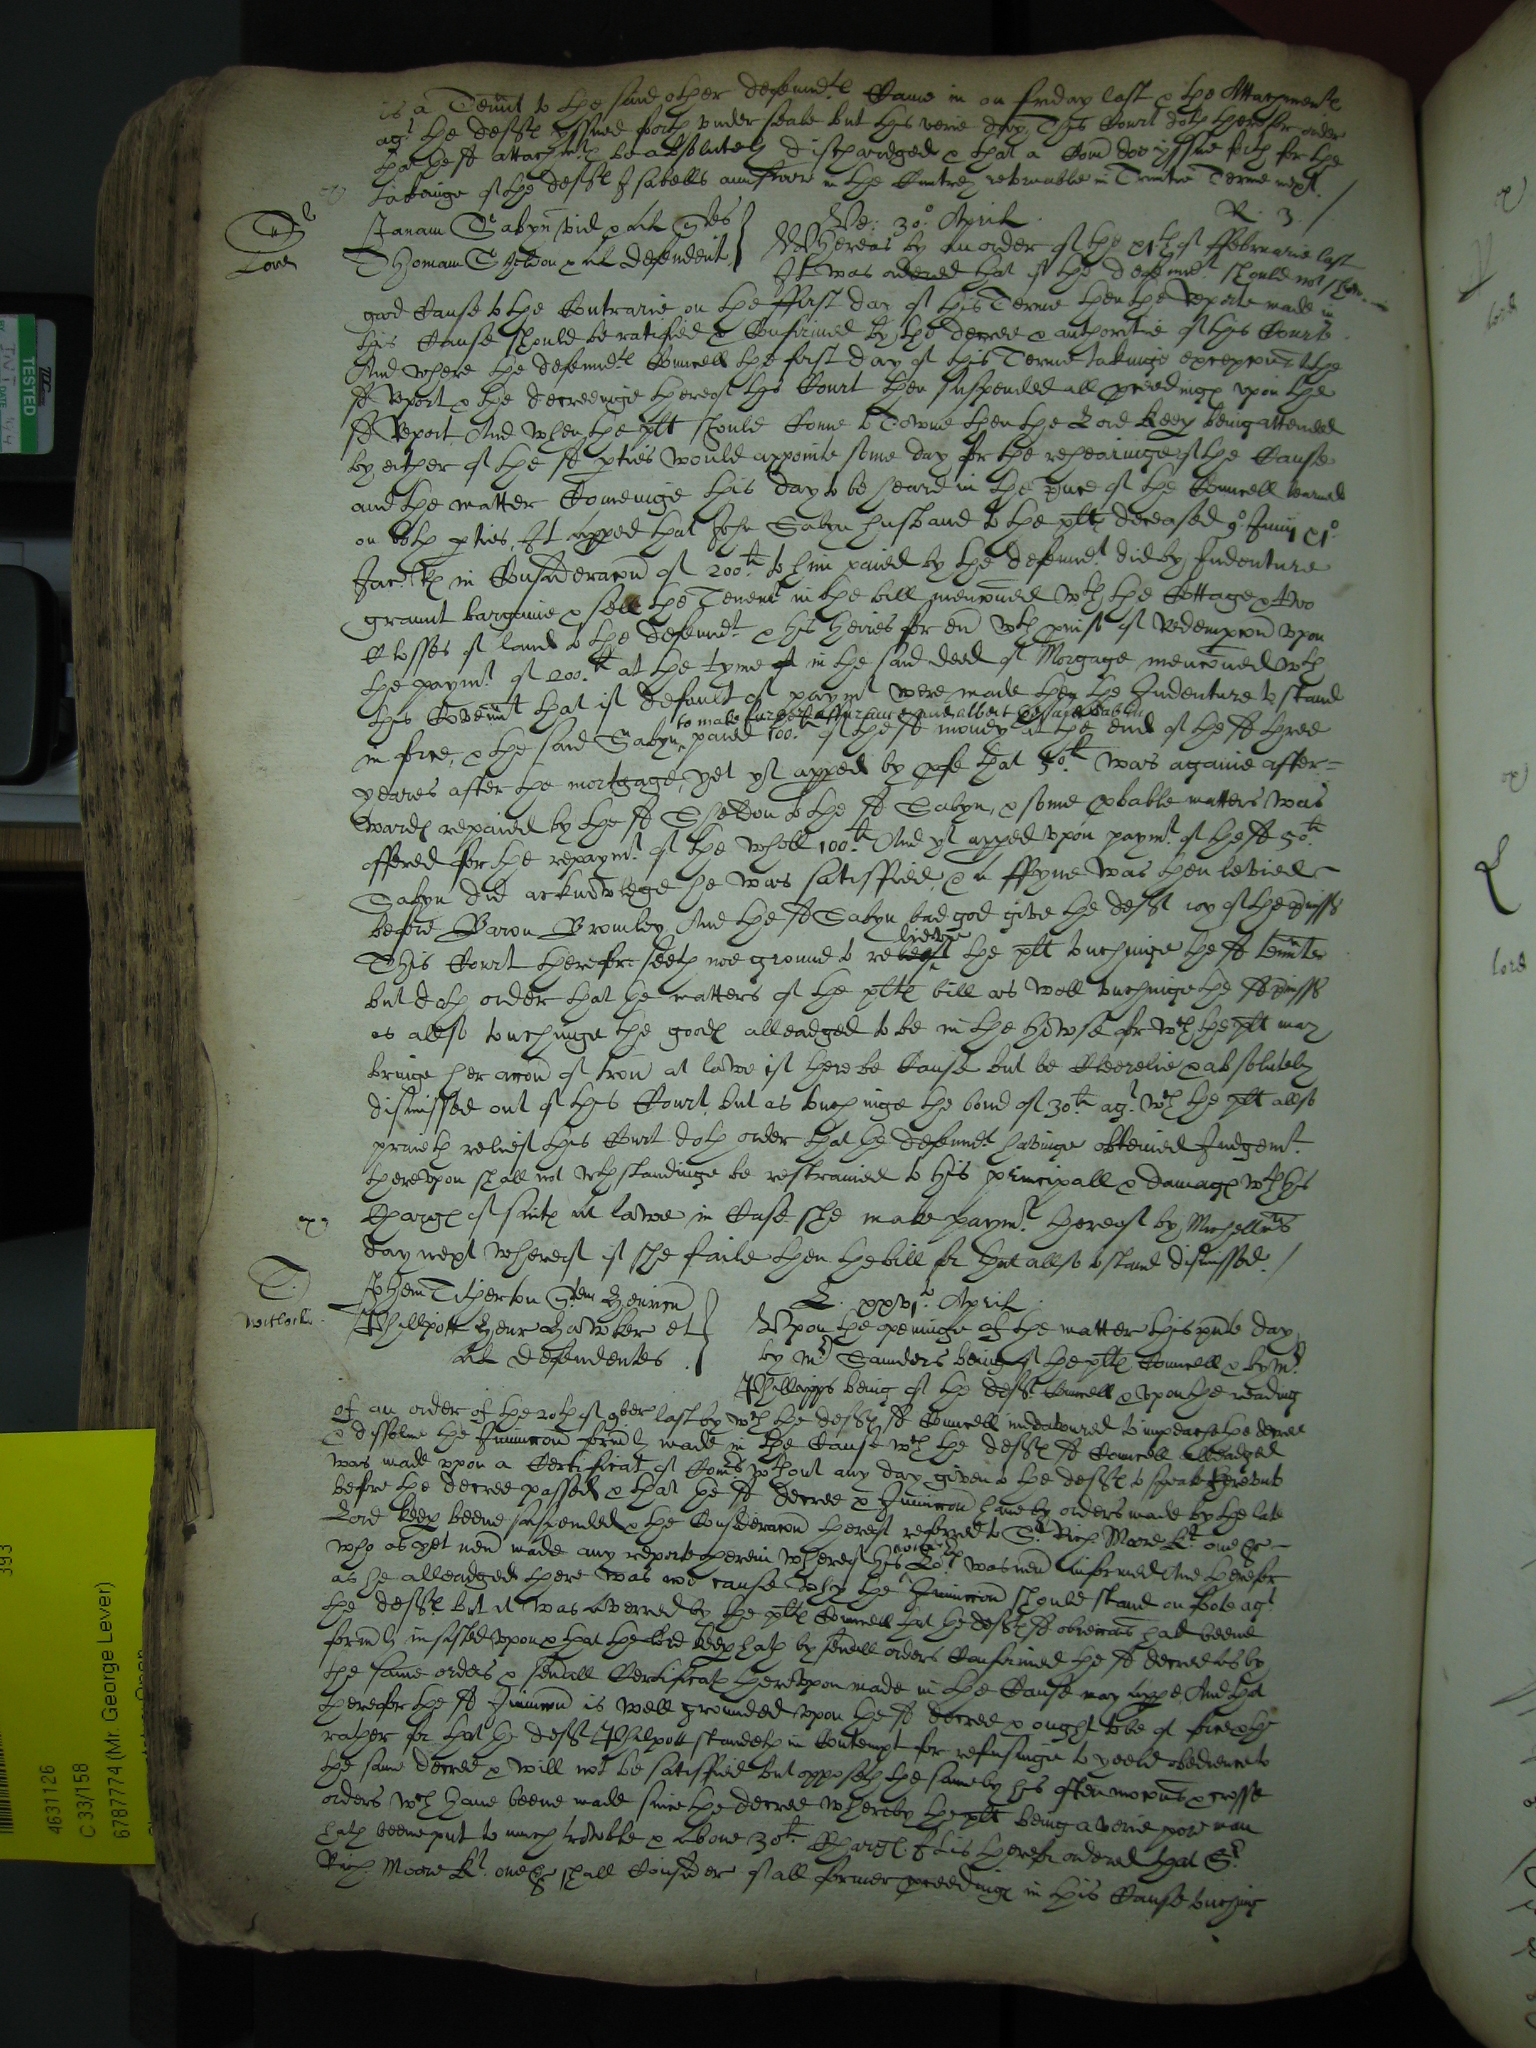 is a Tennt to the said other defendtes Came in on Friday last & the Attachmentes
agt the deftes yssued forth under seale but this verie day, This Court doth therefore order
that the sd attachmtes be absolutely dischardged & that a Com doe yssue forth for the
takeinge of the deftes Isabells answere in the Cuntrey retornable in Trinitie Terme next.
Janam Sabyn vid & al quer
Thomam Sheldon & al defendent
Love
Ve: 30o Aprill
R. 3.
Whereas by an order of the xith of Februarie last
It was ordered that if the defendt should not shew
good Cause to the Contrarie on the ffirst day of this Terme then the Reporte made in
this Cause should be ratified & Confirmed by the decree & authoritie of this Courte
And where the defendtes Councell the first day of this Terme takinge excepcons to the
sd report & the decreeinge thereof this Court then suspended all proceedinges upon the
sd Report And when the plt should Come to Towne then the Lord Keep being attended
by either of the sd pties would appointe some day for the rehearinge of the Cause
and the matter Comeinge this day to be heard in the pnce of the Councell learned
on both pties, It apped that John Sabyn husband to the plt deceased 9o Junij xio
Jac: Rs in Consideracon of 200li to him paied by the defendt did by Indenture
graunt bargaine & sell the Tenemt in the bill menconed wth the Cottage & two
Closses of land to the defendt & his Heires for en wth proviso of Redempcon upon
the paymt of 200li at the tyme in the said deed of Morgage menconed wth
this Covennt that if default of paymt were made then the Indenture to stand
in force, & the said Sabyn to make further assurance and albeit
paied 100li of the sd money at the end of the sd three
yeares after the mortgage, yet yt apped by pfe that 50li was againe after=
wardes repaied by the sd Sheldon to the sd Sabyn, & some pbable matters was
offered for the repaymt of the wholl 100li And yt apped upon paymt of the sd 50li
Sabyn did acknowledge he was satisfied, & a ffyne was then levied
before Baron Bromley And the sd Sabyn bad god give the deft ioy of the pmisss
This Court therefore seeth noe ground to relieve the plt touchinge the sd tenmtes
but doth order that the matters of the pltes bill as well touchinge the sd pmisss
as allso touchinge the goodes alleadged to be in the Howse for wch the plt may
bringe her accon of trou at lawe if there be Cause but be Cleerelie & absolutely
dismissed out of this Court, but as touchinge the bond of 30li agt wch the plt allso
praieth relief this Court doth order that the defendt haveinge obteined Judgemt
thereupon shall not wthstandinge be restrained to his principall & damages wth his
Charges of suite at lawe in Case she make paymt thereof by Michellms
day next whereof if she faile then the bill for that allso to stand dismissed.
Whitlock
Johem Titherton Quer
Phillpott Henr Hawker et
al defendentes
L. xxvio Aprill.
Upon the openinge of the matter this pnte day
by Mr Saunders being of the pltes Councell & by Mr
Phillipps being of the deftes Councell & upon the reading
of an order of the 20th of 9ber last by wch the deftes sd Councell indeavoured to impeach the decree
& dissolve the Iniunccon formly made in the Cause wch the deftes sd Councell alleadged
was made upon a Certificat of Comrs wthout any day given to the deftes to speak thereunto
before the decree passed & that the sd decree & Iniunccon have by orders made by the late
Lord Keep beene suspended & the Consideracon thereof referred to Sr Rich Moore Kt one &c
who as yet nevr made any reporte therein whereof his Lopp was nevr informed And therefore
as he alleadged there was noe cause why the Iniunccon should stand on foote agt
the deftes but it was averred by the pltes Councell that the deftes sd obieccons had beene
formly insisted upon & that the Lord Keep hath by severall orders Confirmed the sd decree as by
the same orders & severall Certificates thereupon made in the Cause may appe And that
therefore the sd Iniunccon is well grounded upon the sd decree & ought to be of force & the
rather for that the deft Philpott standeth in Contempt for refusinge to yeeld obedience to
the same decree & will not be satisfied but opposeth the same by his often mocons & crosse
orders wch have beene made since the decree whereby the plt being a verie pore man
hath beene put to much trouble & above 30li Charges It is therefore ordered that Sr
Rich Moore Kt one &c shall Consider of all former proceedinges in this Cause touching
TESTED
393
4631126
C 33/158
6787774 (Mr. George Lever)